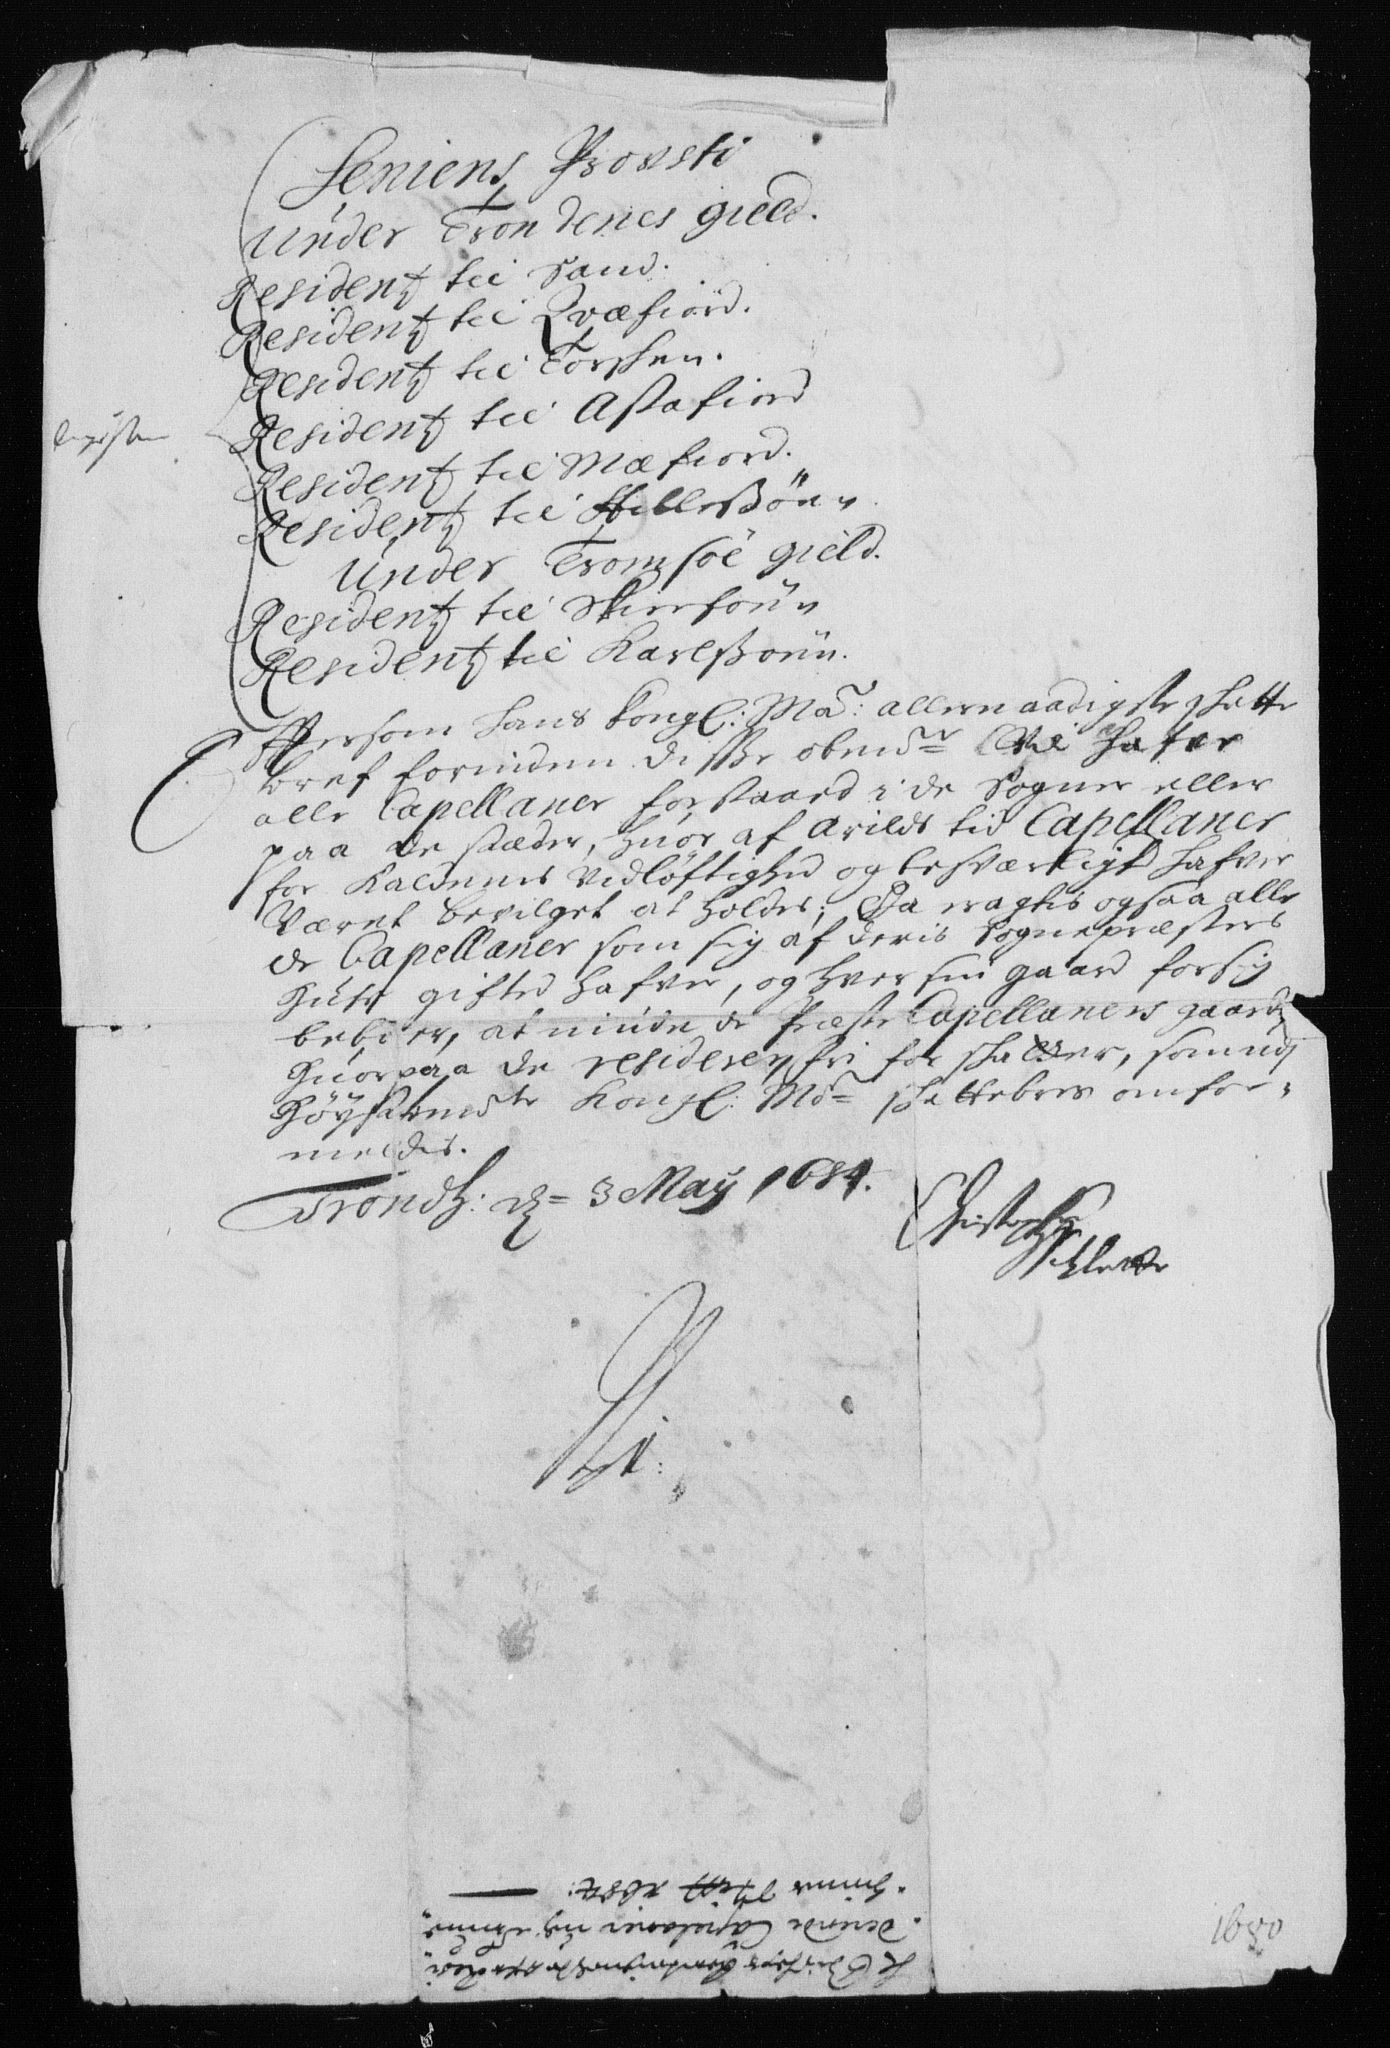 Seniens Provsti
Under Trondenes gield.
Resident til Sand.
Resident til Qvæfiord.
Resident til Torshen.
Resident til Astafiord
Resident til Mæfiord.
Resident til Hillesøen
Under Tromsøe gield.
Resident til Skierføen
Resident til Karlsøen.
Efftersom hans Kongl: Ma: allernaadigste Skatte
bref formelder disse obmte Vil hafve
alle Capellaner forstaaed i de Sogner eller
paa de stæder, huor af Arilds tid Capellaner
for Kaldenes vidløftighed og besværlighed hafver
været bevilget at holdes; Da agtis ogsaa alle
de Capellaner som sig af deris Sognepræsters
huse gifted hafver, og hver sin gaard for sig
beboer, at niude de Præste Capellaners gaarde
huorpaa de residerer, fri for skatter, som udj
høystbemte Kongl: Ms skattebref omfor-
meldes.
Trondh: d 3 May 1684.
Christopher
Schletter
1680